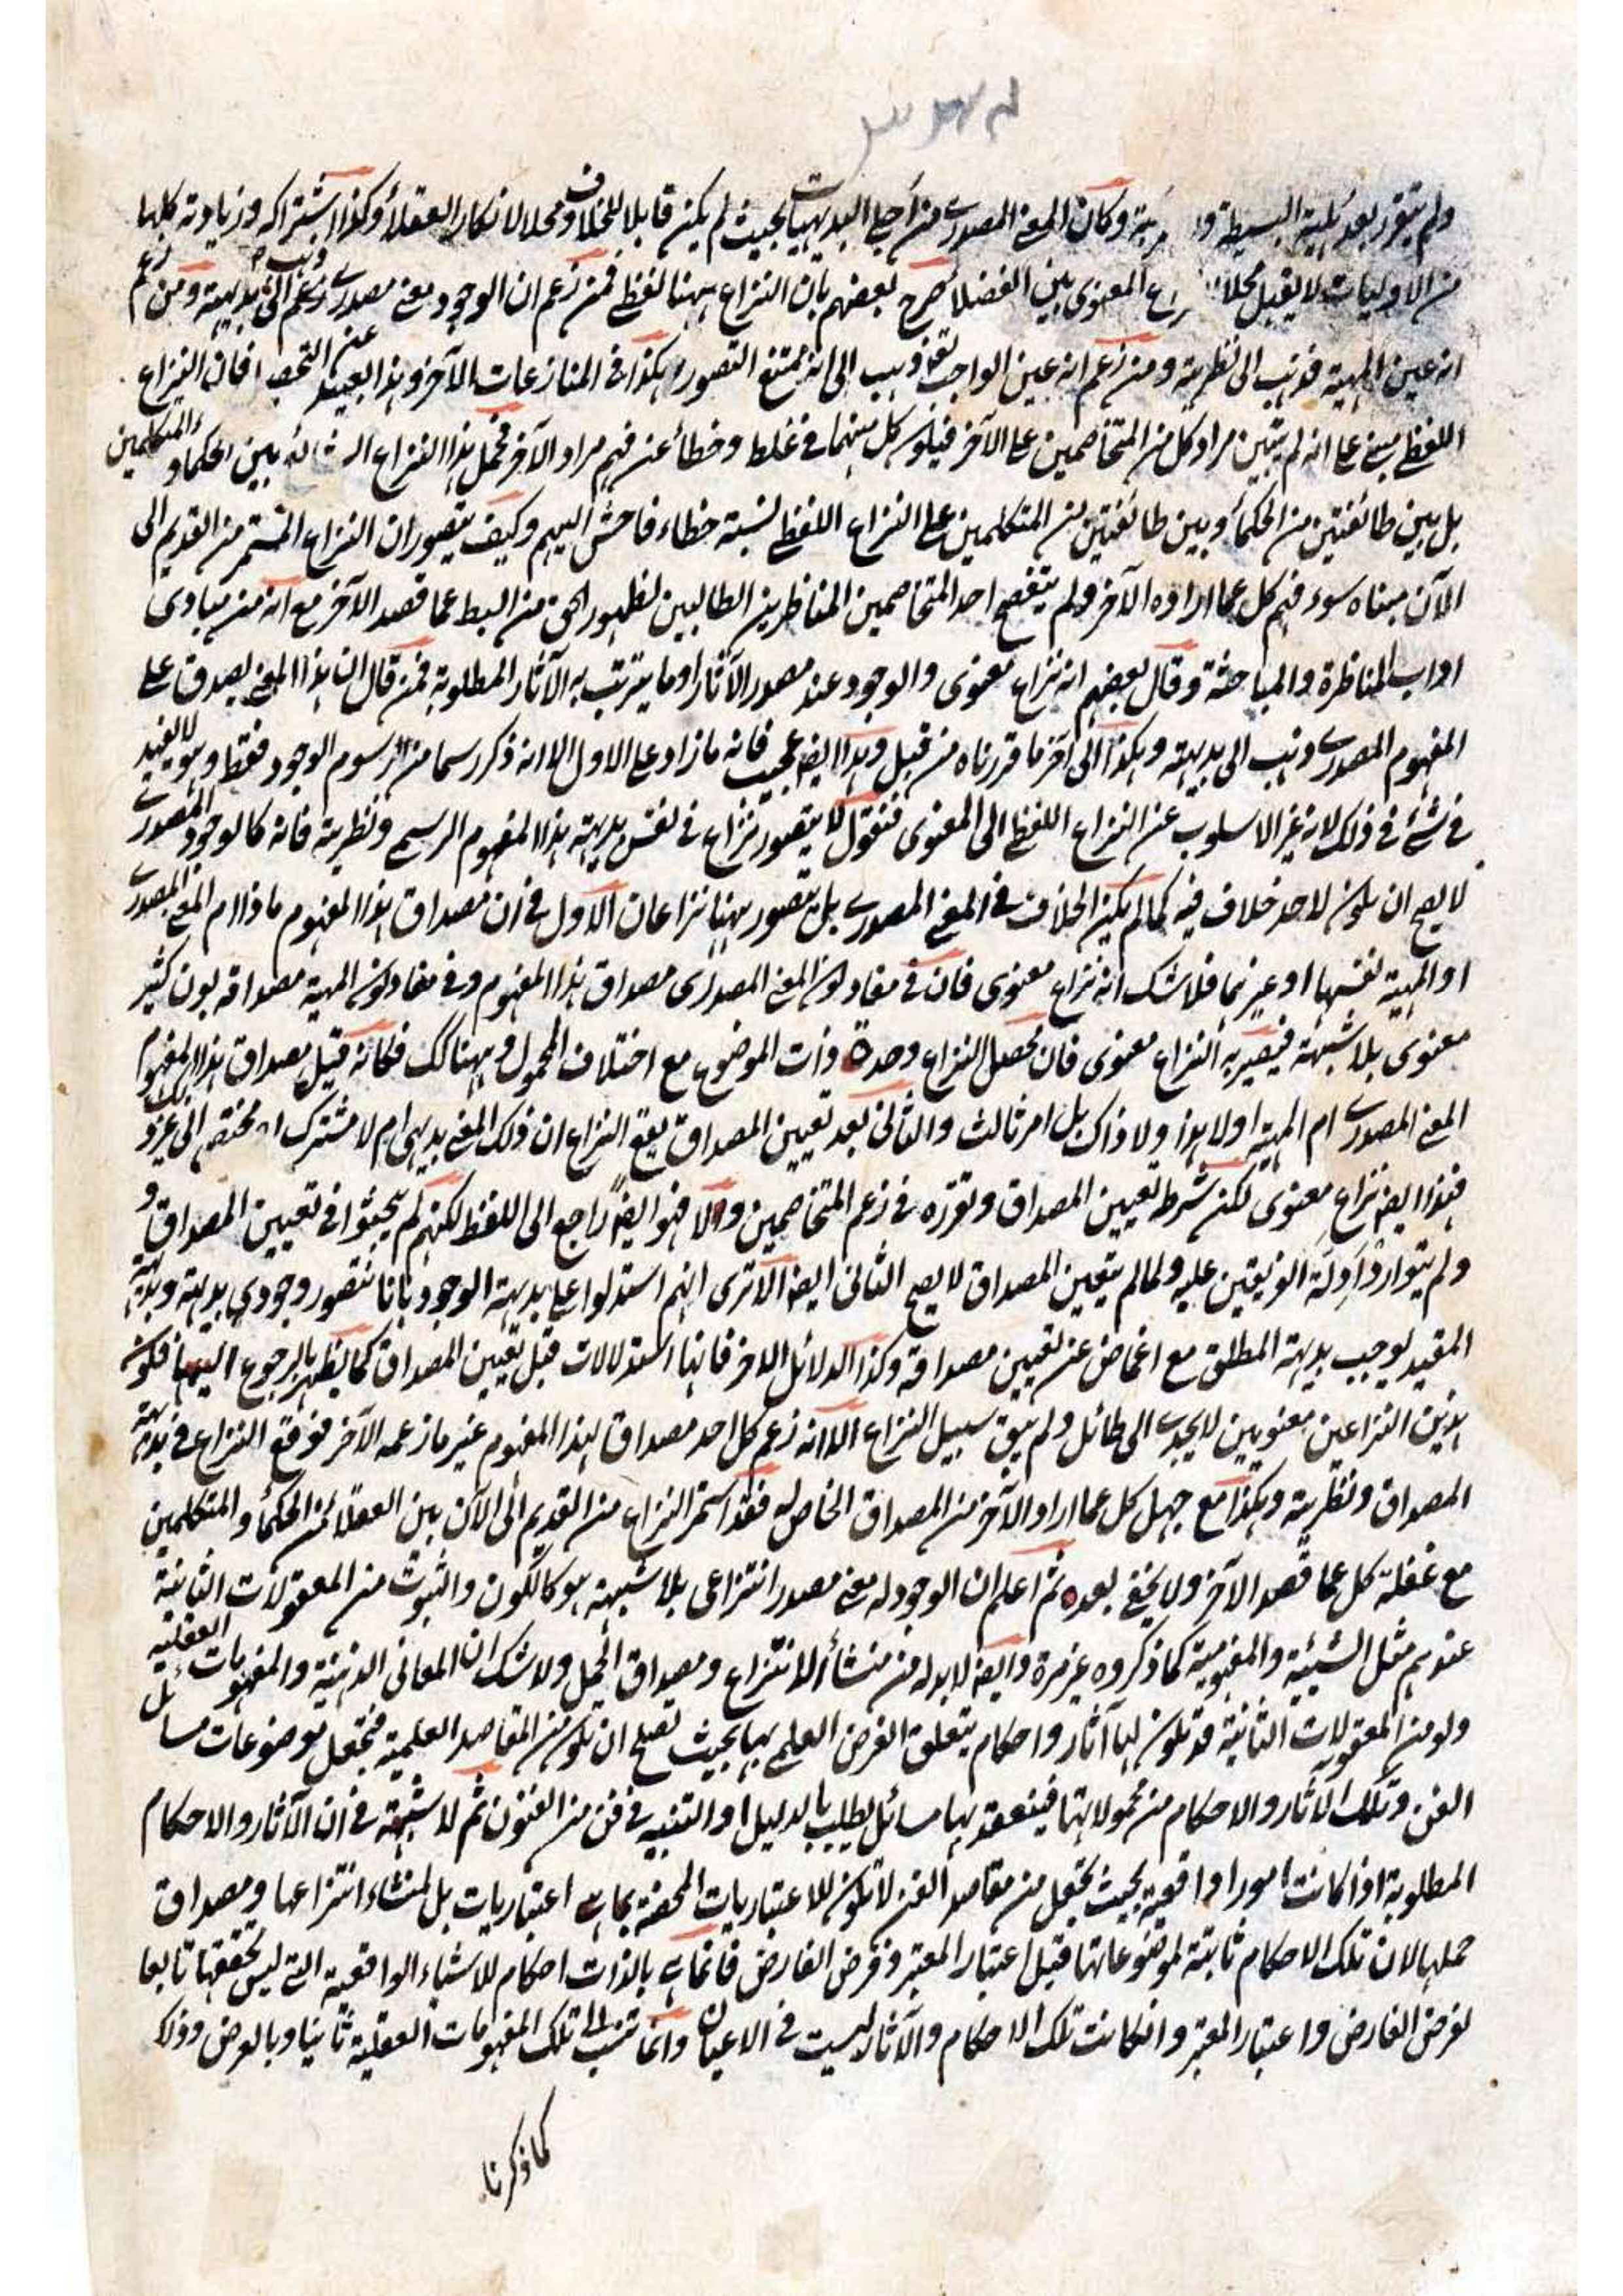 ولم يتقرر بعد بلية البسيطة و وكان المعنى المصدري من اجلى البديهيات بحيث لم يكن قابلا للخلاف ومحلا لانكار العقلاء وكذا اشتراكه وزيادته كلها
من الاوليات لا يقبل محلا المعنوى بين الفضلا صرح بعضهم بان النزاع ههنا لفظى فمن زعم ان الوجود معنى مصدرى وزعم الى بديهية ومن زعم
انه عين المهية فذهب الى نظريته ومن زعم انه عين الواجب تعالى ذهب الى انه ممتنع التصور وهكذا فى المنازعات الآخر وهذا بعيد عن التحصيل فان النزاع
اللفظى مبنى على انه لم يتبين مراد كل من المتخاصمين على الآخر فيكون كل منهما فى غلط وخطأ عن فهم مراد الآخر فحمل هذا النزاع بين الحكماء والمتكلمين
بل بين طائفتين من الحكماء وبين طائفتين من المتكلمين على النزاع اللفظى نسبة خطاء فاحش اليهم وكيف يتصور ان النزاع المستمر من القديم الى
الآن مبناه سوء فهم كل عما اراده الآخر ولم يتفحص احد المتخاصمين المناظرين الطالبين لظهور الحق من البسط عما قصد الآخر مع انه من مبادى
اداب المناظرة والمباحثة وقال بعضهم انه نزاع معنوى والوجود عند مصدر الآثار او ما يترتب به الآثار المطلوبة فمن قال ان هذا المعنى يصدق على
المفهوم المصدرى ذهب الى بديهيته وهكذا الى آخر ما قررناه من قبل وهذا ايضا عجيب فانه ما زاد على الاول الا انه ذكر رسما من رسوم الوجود فقط وهو لا يفيد
فى شئ فى ذلك لانه غير الاسلوب عن النزاع اللفظى الى المعنوى فنقول لا يتصور نزاع فى نفس بديهية هذا المفهوم الرسمى ونظريته فانه كالوجود المصدرى
لا يصح ان يكون لاحد خلاف فيه كما لم يكن الخلاف فى المعنى المصدرى بل يتصور ههنا نزاعان الاول فى ان مصداق هذا المفهوم ماذا ام المعنى المصدرى
او المهية نفسها او غيرهما فلا شك انه نزاع معنوى فان فى مفاد كون المعنى المصدرى مصداق هذا المفهوم وفى مفاد كون المهية مصداقه بون كثير
معنوى بلا شبهة فيصير به النزاع معنوى فان محصل النزاع وحدة ذات الموضوع مع اختلاف المحمول وههنا كك فكانه قيل مصداق هذا المفهوم
المعنى المصدرى ام المهية او لا هذا ولا ذاك بل امر ثالث والثانى بعد تعيين المصداق يقع النزاع ان ذلك المعنى بديهى ام لا مشترك او مختص الى غير ذلك
فهذا ايضا نزاع معنوى لكن شرط تعيين المصداق وتقرره فى زعم المتخاصمين والا فهو ايضا راجع الى اللفظ لكنهم لم يبحثوا فى تعيين المصداق و
ولم يتوارد ادلة الفريقين عليه ولما لم يتعين المصداق لا يصح الثانى ايضا الا ترى انهم استدلوا على بديهة الوجود بانا نتصور وجودى بديهة وبديهة
المقيد يوجب بديهة المطلق مع اغماض عن تعيين مصداقه وكذا الدلائل الاخر فانها استدلالات قبل تعيين المصداق كما يظهر بالرجوع اليها فكون
هذين النزاعين معنويين لا يجدى الى طائل ولم يبق سبيل النزاع الا انه زعم كل احد مصداق لهذا المفهوم غير ما زعمه الآخر فوقع النزاع فى بديهة
المصداق ونظريته وهكذا مع جهل كل عما اراد الآخر من المصداق الخاص له فقد استمر النزاع من القديم الى الآن بين العقلاء من الحكماء والمتكلمين
مع غفلة كل عما قصد الآخر ولا يخفى بعده ثم اعلم ان الوجود له معنى مصدر انتزاعى بلا شبهة هو كالكون والثبوت من المعقولات الثانية
عندهم مثل الشيئية والمفهومية كما ذكروه غير مرة وايضا لا بد له من منشأ للانتزاع ومصداق الحمل ولا شك ان المعانى الذهنية والمفهومات العقلية
ولو من المعقولات الثانية قد تكون لها آثار واحكام يتعلق الغرض العلمى بها بحيث تصلح ان تكون من المقاصد العلمية فتجعل موضوعات مسائل
الفن وتلك الآثار والاحكام من محمولاتها فينعقد بها مسائل يطلب بالدليل او التنبيه فى فن من الفنون ثم لا شبهة فى ان الآثار والاحكام
المطلوبة اذا كانت امورا واقعية بحيث تجعل من مقاصد الفن لا تكون للاعتباريات المحضة بما هى اعتباريات بل لمنشاء انتزاعها ومصداق
حملها لان تلك الاحكام ثابتة لموضوعاتها قبل اعتبار المعتبر وفرض الفارض فانما هى بالذات احكام للاشياء الواقعية التى ليس تحققها تابعا
لفرض الفارض واعتبار المعتبر وان كانت تلك الاحكام والآثار ليست فى الاعيان وانما تنسب الى تلك المفهومات العقلية ثانيا وبالعرض وذلك
كما ذكرنا